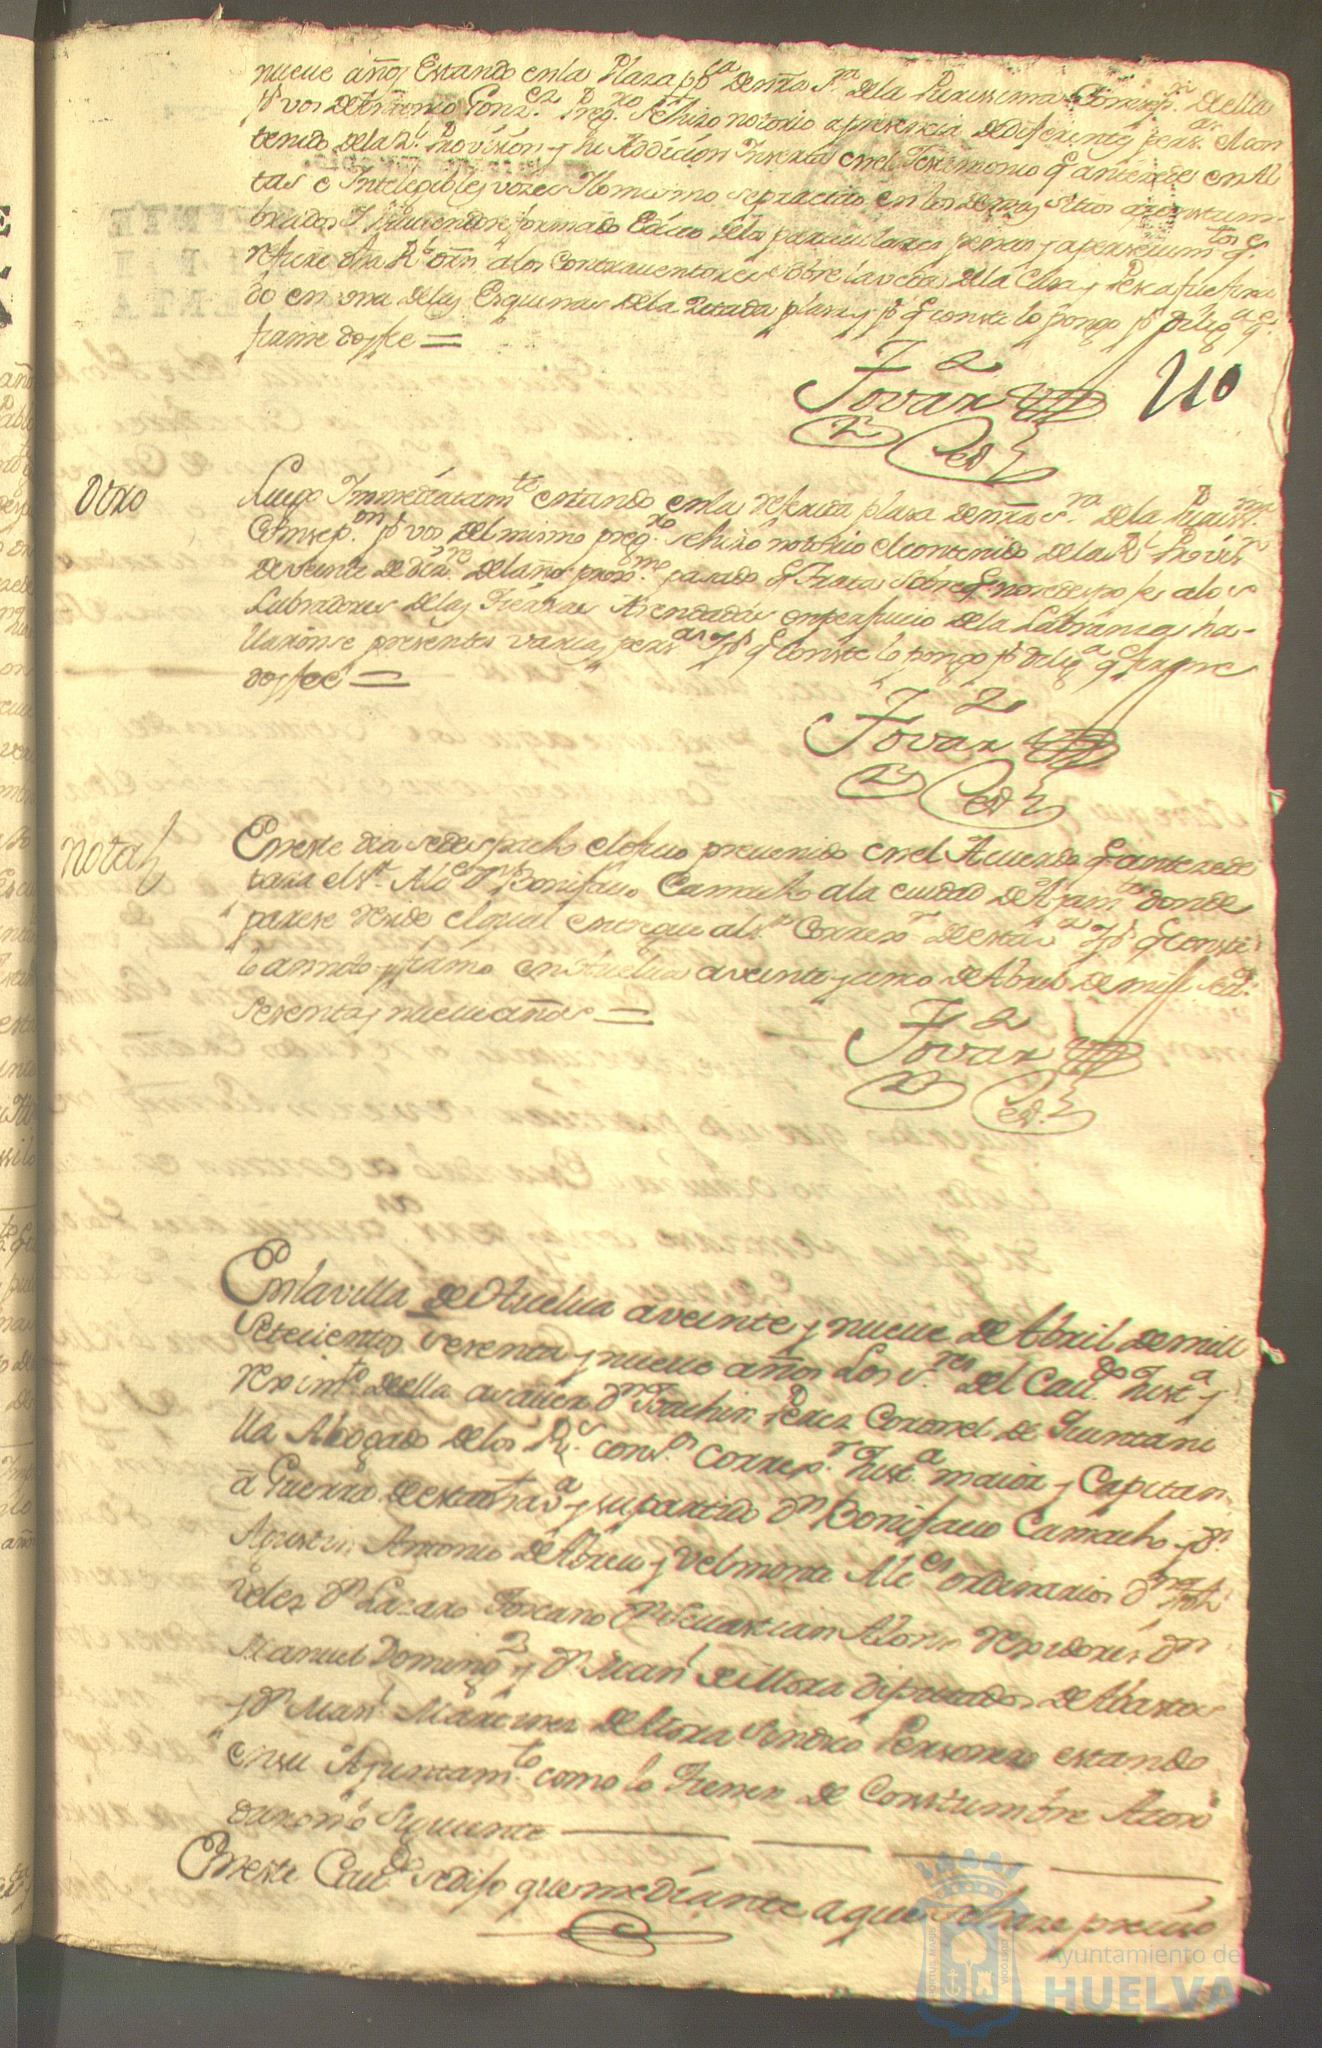 nueue años Estando enla Plaza pp.ca de nra S.ra dela Purissima Consep.on de ella
p.r vos de Antonio Gonz.ez Preg.ro se hizo notorio a presencia de diferentes pers.as el con
tenido dela R.l Provision y su Addicion Inserta en el Testimonio q.e antecede en Al
tas e Inteligibles vozes Y lo mismo se practico en los demas sitios acostum-
brados Y haviendose formado Edicto dela particulares penas y apersevim.tos q.e
refiere dha R.l orn. alos Contraventores sobre la veda dela Caza y Pesca se fixa
do en una delas Esquinas dela zitada plaza y p.a q.e conste lo pongo p.r dilig.a q.e
firme doy fee =
Tovar
110
Otro
Luego Immediatam.te estando enla referida plaza de nra S.ra dela Puriss.ma
Consep.on p.r vos del mismo preg.ro se hizo notorio el contenido de la R.l Provis.n
de veinte de Diz.re del año prox.mo pasado q.e trata sobre q.e no se despojes alos
Labradores delas Tierras Arrendadas en perjuicio dela Labranza, ha-
llaronse presentes varias pers.as Y p.a q.e conste lo pongo p.r dilig.a q.e firme
doy fee =
Tovar
Nota
En este dia se despacho el ofisio prevenido en el Acuerdo q.e antezede
para el S.r Alc.e D.n Bonifacio Camacho ala ciudad de Ayam.te donde
parese reside el qual entregue al S.r Correx.r de esta v.a Y p.a q.e conste
lo annoto y firmo en Huelva a veinte y cinco de Abril de mill sett.s
sesenta y nueue años =
Tovar
En la villa de Huelva a veinte y nueue de Abril de mill
Setecientos sesenta y nueue años Los S.res del Cav.do Just.a y
rex.im.to de ella a saver D.n Joachin Perez Coronel de Quintani
lla Abogado de los R.s cons.s Correx.r Just.a maior y Capitan
a Guerra de esta dha v.a y su partido D.n Bonifacio Camacho y D.n
Agustin Antonio de Abreu y Velmonte Alc.es ordinarios D.n
Velez D.n Lazaro D.n Sevastian Alonso rexidores D.n
Manuel Doming.z y D.n Man.l de Mora Diputados de Abastos
y D.n Man.l Martinez de Mora Sindico Personero estando
en su Ajuntam.to como lo tienen de Constumbre Acor
daron lo siguiente
En este Cav.do se dijo que mediante a que se haze preciso
Ayuntamiento de
HUELVA